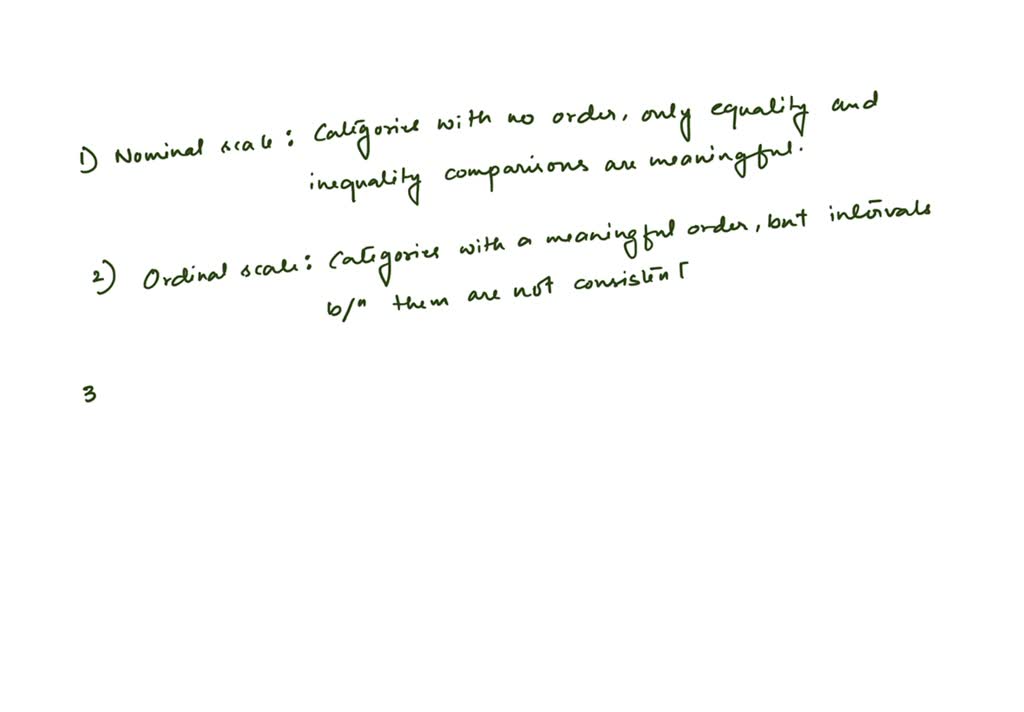 1) Nominal scale: Categories with no order, only equality and
inequality comparisons are meaningful.
2) Ordinal scale: Categories with a meaningful order, but intervals
b/n them are not consistent
3